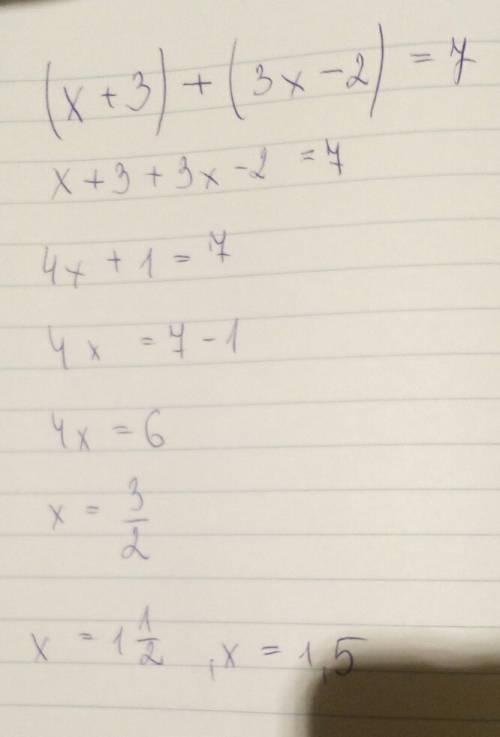 (x + 3) + (3x - 2) = 7
x + 3 + 3x - 2 = 7
4x + 1 = 7
4x = 7 - 1
4x = 6
x = 3/2
x = 1 1/2 , x = 1,5